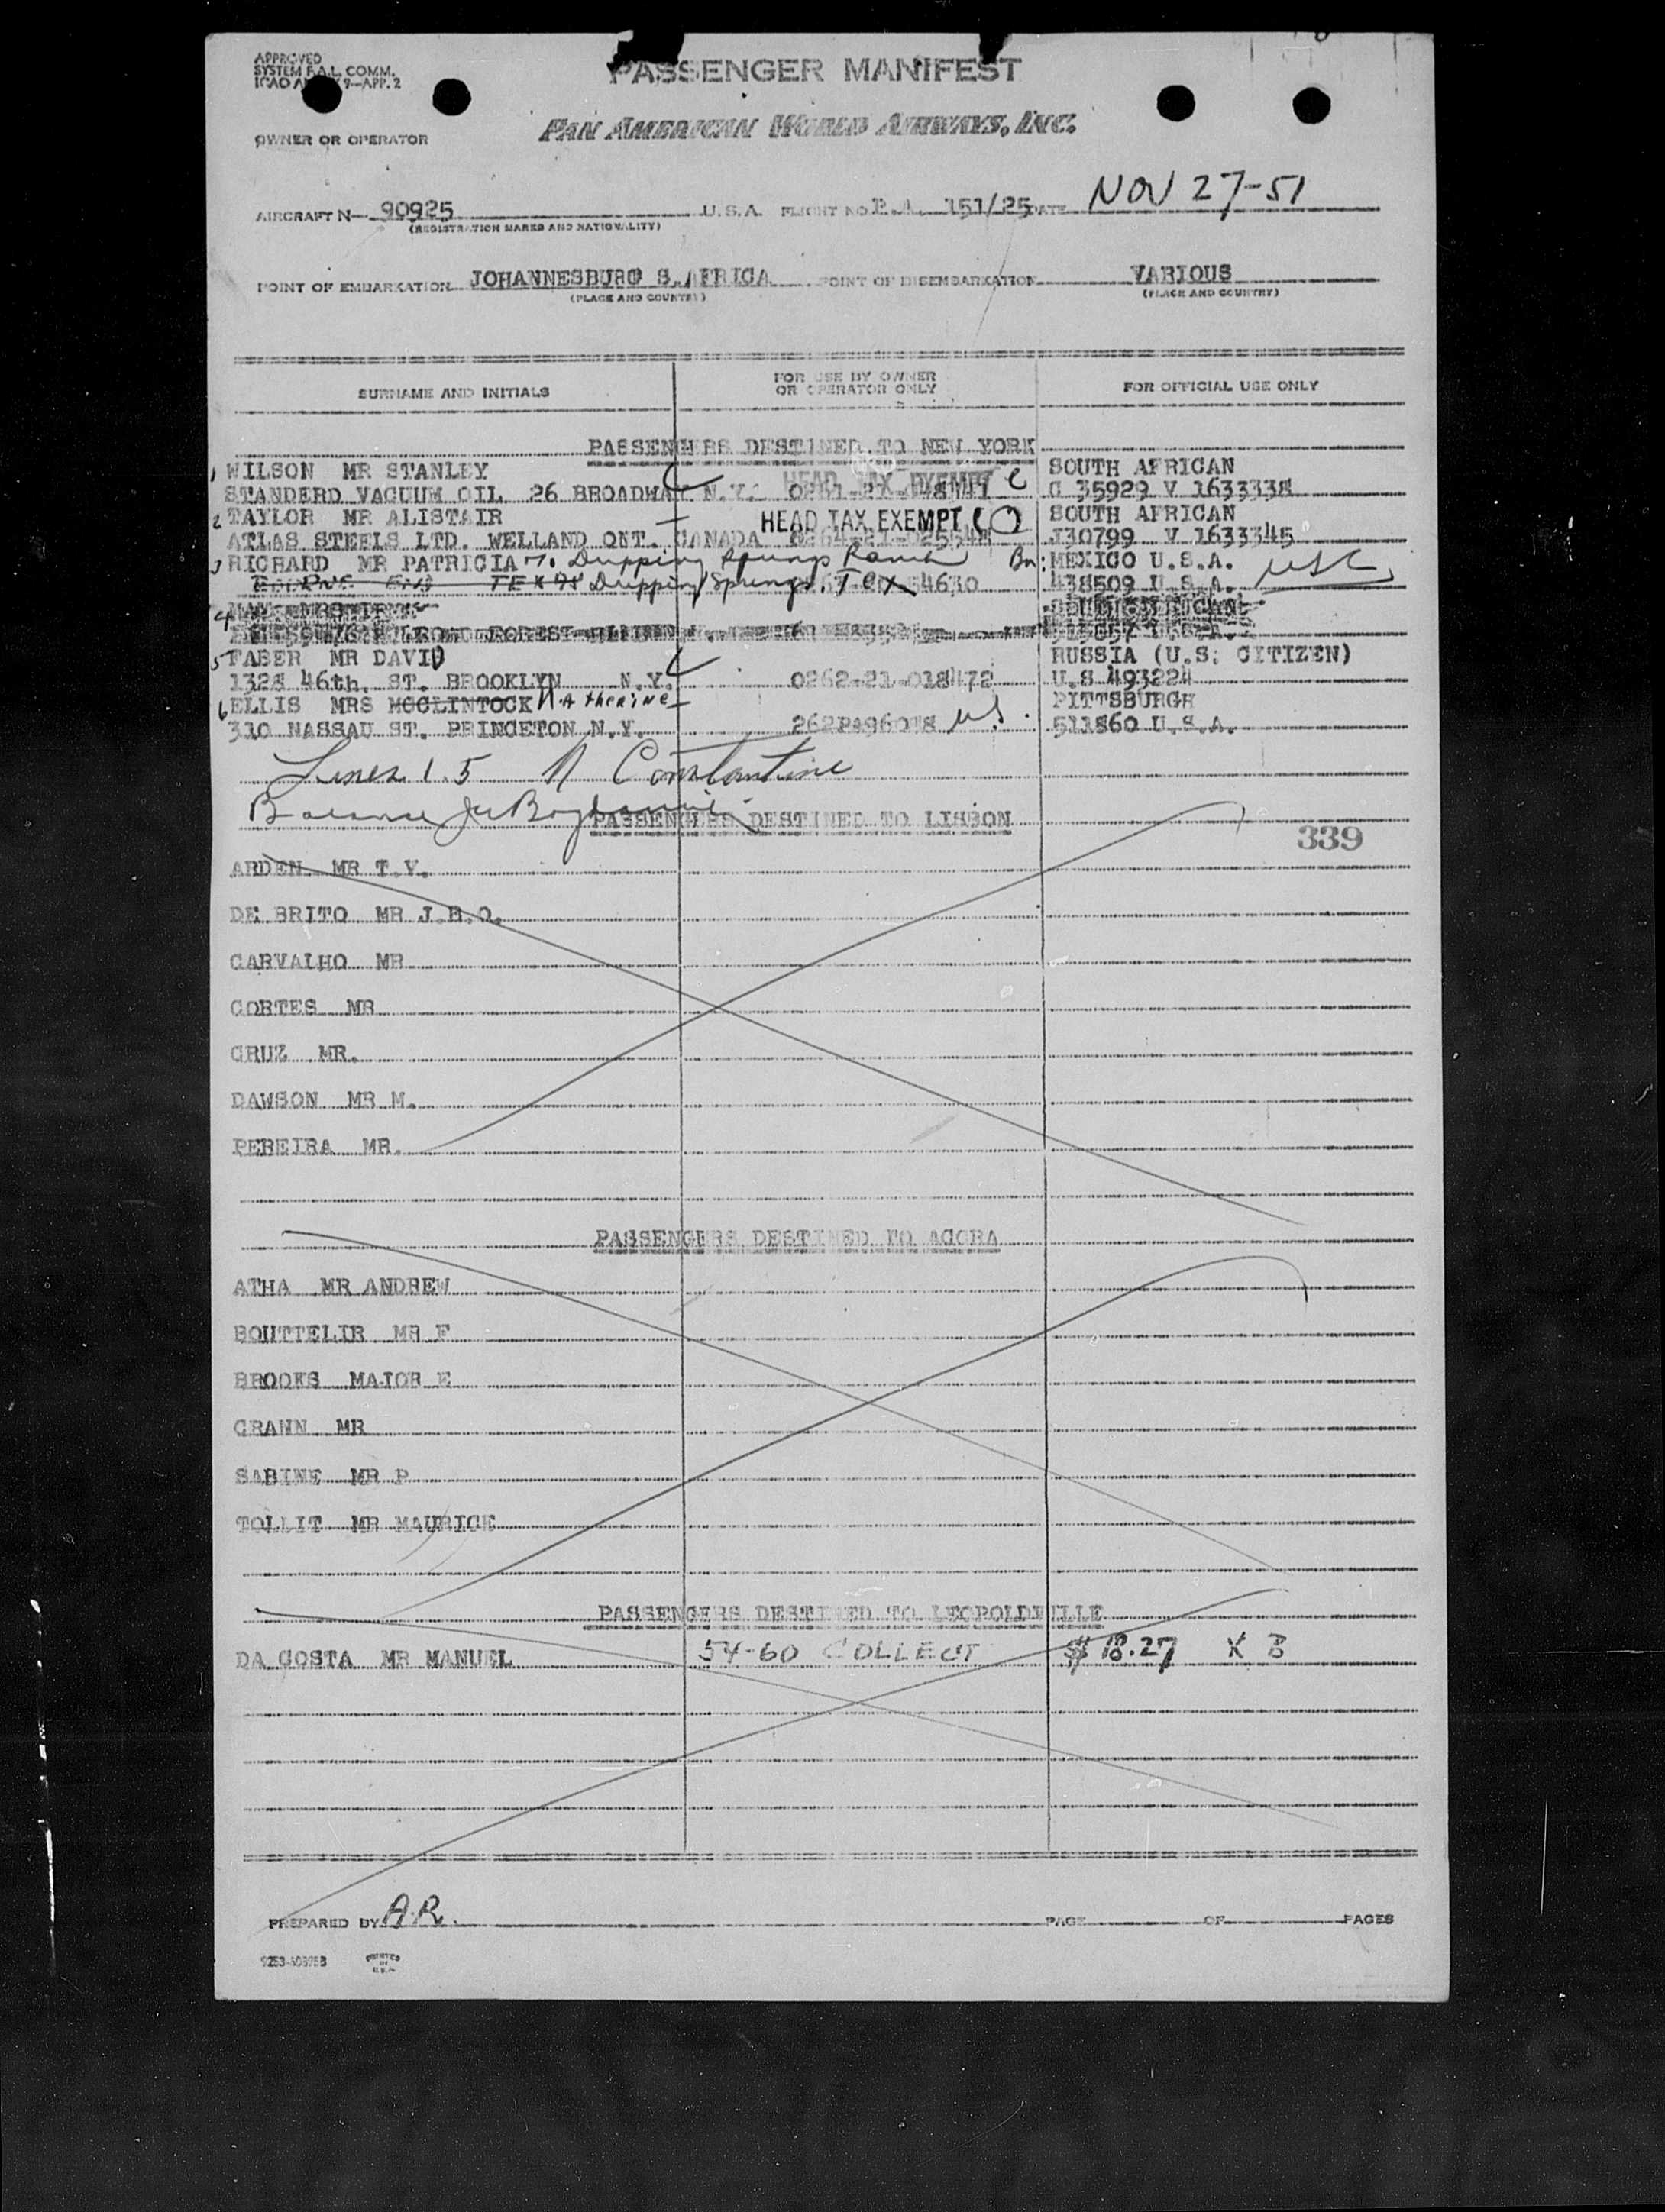 APPROVED
SYSTEM F.A.L. COMM.
9—APP. 2
PASSENGER MANIFEST
OWNER OR OPERATOR
PAN AMERICAN WORLD AIRWAYS, INC.
AIRCRAFT N— 90925 U.S.A. FLIGHT NO P.A. 151/25 DATE NOV 27-51
(REGISTRATION MARKS AND NATIONALITY)
POINT OF EMBARKATION JOHANNESBURG S.AFRICA POINT OF DISEMBARKATION VARIOUS
(PLACE AND COUNTRY) (PLACE AND COUNTRY)
SURNAME AND INITIALS FOR USE BY OWNER OR OPERATOR ONLY FOR OFFICIAL USE ONLY
PASSENGERS DESTINED TO NEW YORK
1 WILSON MR STANLEY SOUTH AFRICAN
STANDERD VACUUM OIL 26 BROADWAY N.Y. HEAD TAX EXEMPT C 35929 V 1633338
2 TAYLOR MR ALISTAIR HEAD TAX EXEMPT SOUTH AFRICAN
ATLAS STEELS LTD. WELLAND ONT. CANADA J30799 V 1633345
3 RICHARD MR PATRICIA Dripping Springs Ranch Bn: MEXICO U.S.A.
TEXAS Dripping Springs, Tex 4630 438509 U.S.A. USC
4
5 FABER MR DAVID RUSSIA (U.S. CITIZEN)
1328 46th. ST. BROOKLYN N.Y. 0262-21-018472 U.S 493224
6 ELLIS MRS MCCLINTOCK Katherine PITTSBURGH
310 NASSAU ST. PRINCETON N.Y. 262PA96018 US. 511860 U.S.A.
Lines 1 5 N Constantine
Balance
PASSENGERS DESTINED TO LISBON
339
ARDEN MR T.V.
DE BRITO MR J.B.O.
CARVALHO MR
CORTES MR
CRUZ MR.
DAWSON MR M.
PEREIRA MR.
PASSENGERS DESTINED TO ACCRA
ATHA MR ANDREW
BOUTTELIR MR F
BROOKS MAJOR E
GRANN MR
SABINE MR P
TOLLIT MR MAURICE
PASSENGERS DESTINED TO LEOPOLDVILLE
DA COSTA MR MANUEL 54-60 COLLECT $ 18.27 X B
PREPARED BY A.R. PAGE OF PAGES
PRINTED
IN
U.S.A.